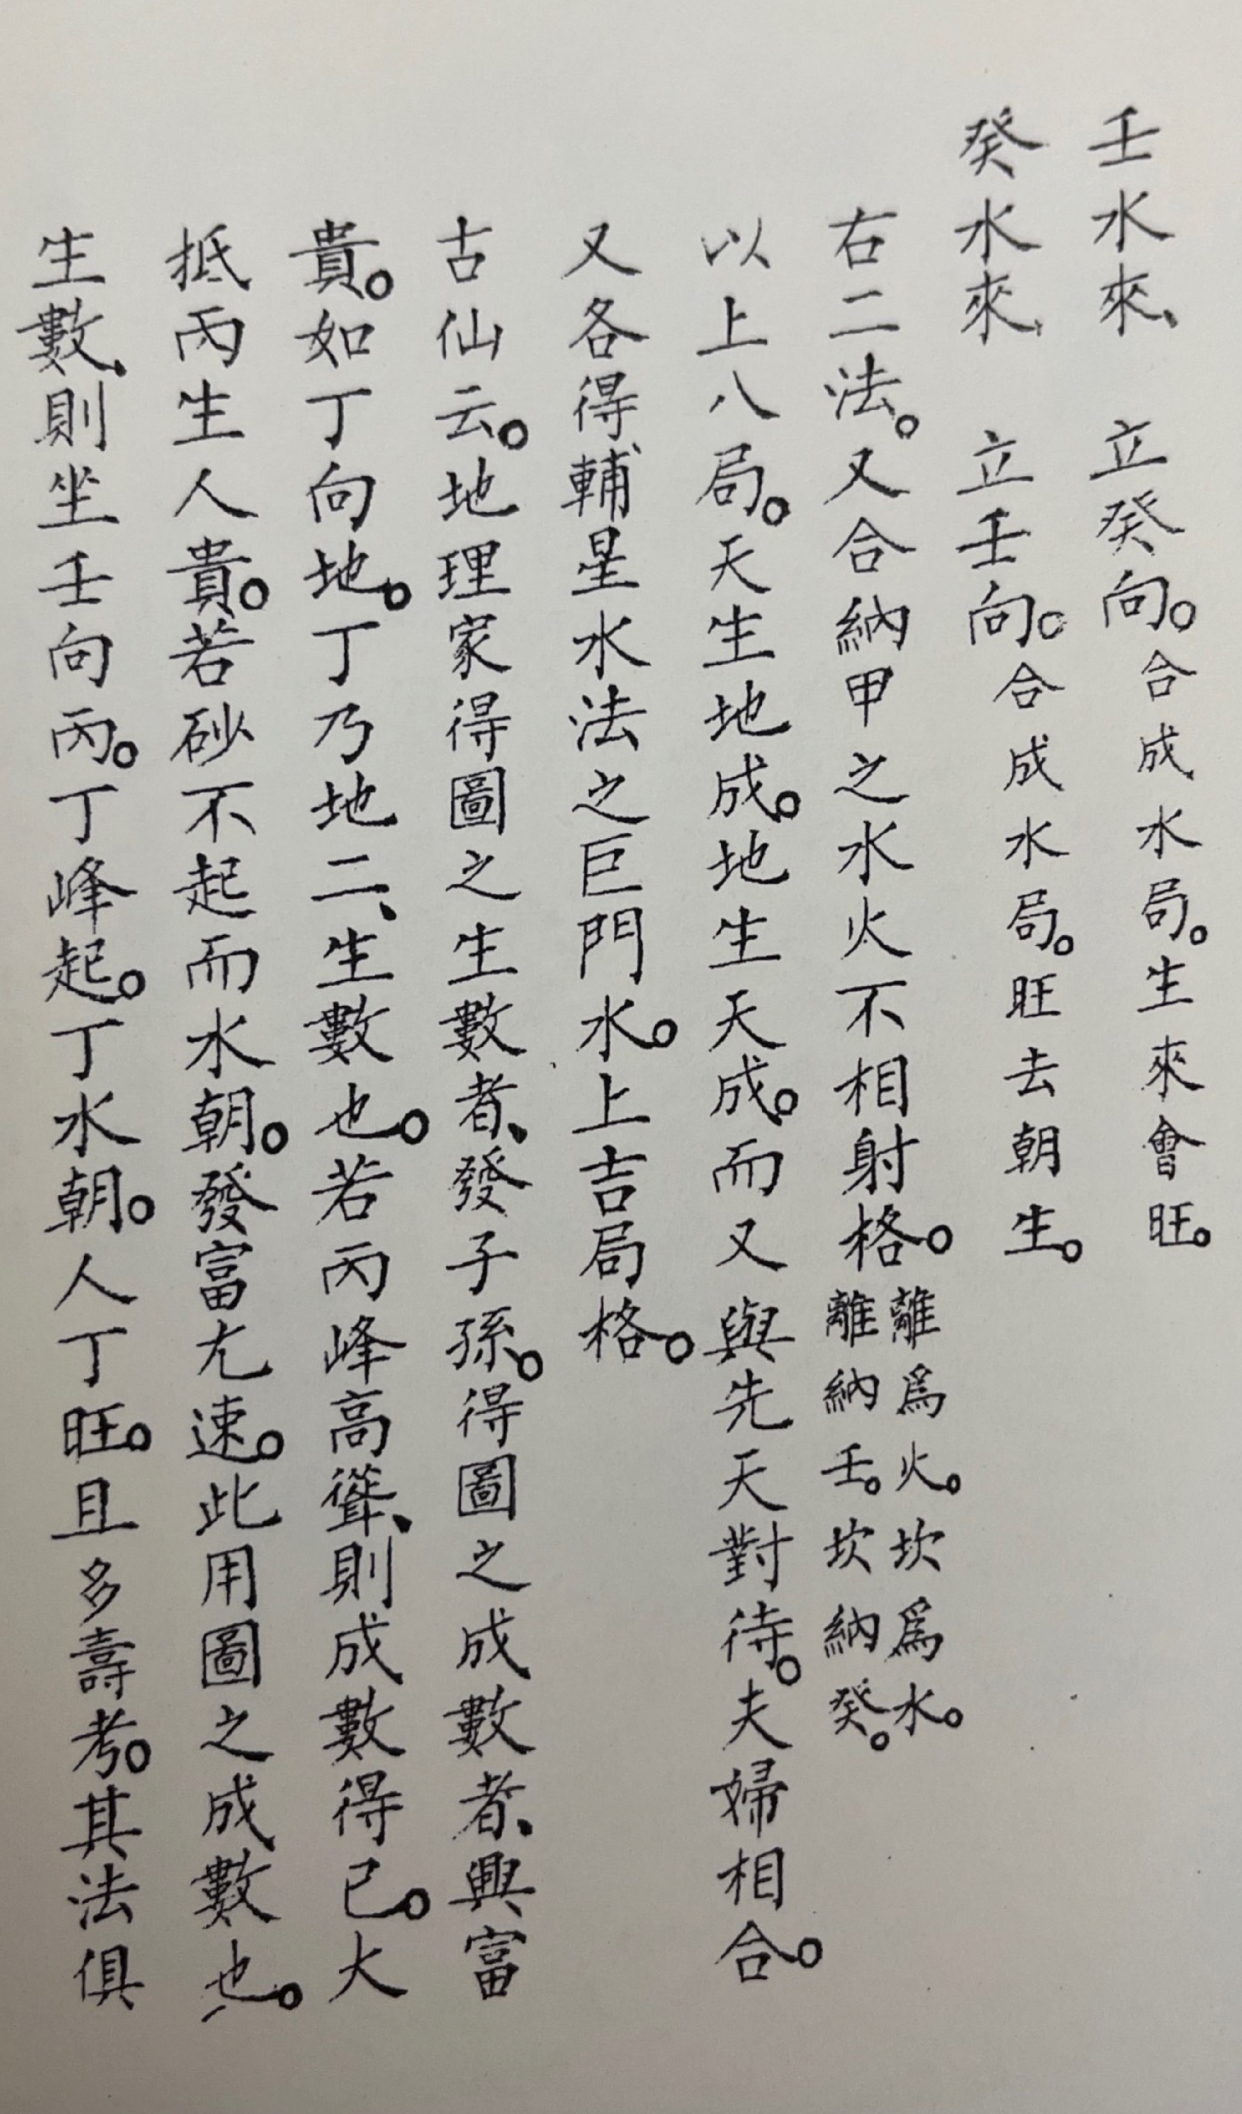 壬水來、立癸向。合成水局。生來會旺。
癸水來、立壬向。合成水局。旺去朝生。
右二法。又合納甲之水火不相射格。離爲火。坎爲水。
離納壬。坎納癸。
以上八局。天生地成。地生天成。而又與先天對待。夫婦相合。
又各得輔星水法之巨門水。上吉局格。
古仙云。地理家得圖之生數者、發子孫。得圖之成數者、興富
貴。如丁向地。丁乃地二、生數也。若丙峰高聳、則成數得已。大
抵丙生人貴。若砂不起而水朝。發富尤速。此用圖之成數也。
生數、則坐壬向丙。丁峰起。丁水朝。人丁旺。且多壽考。其法俱